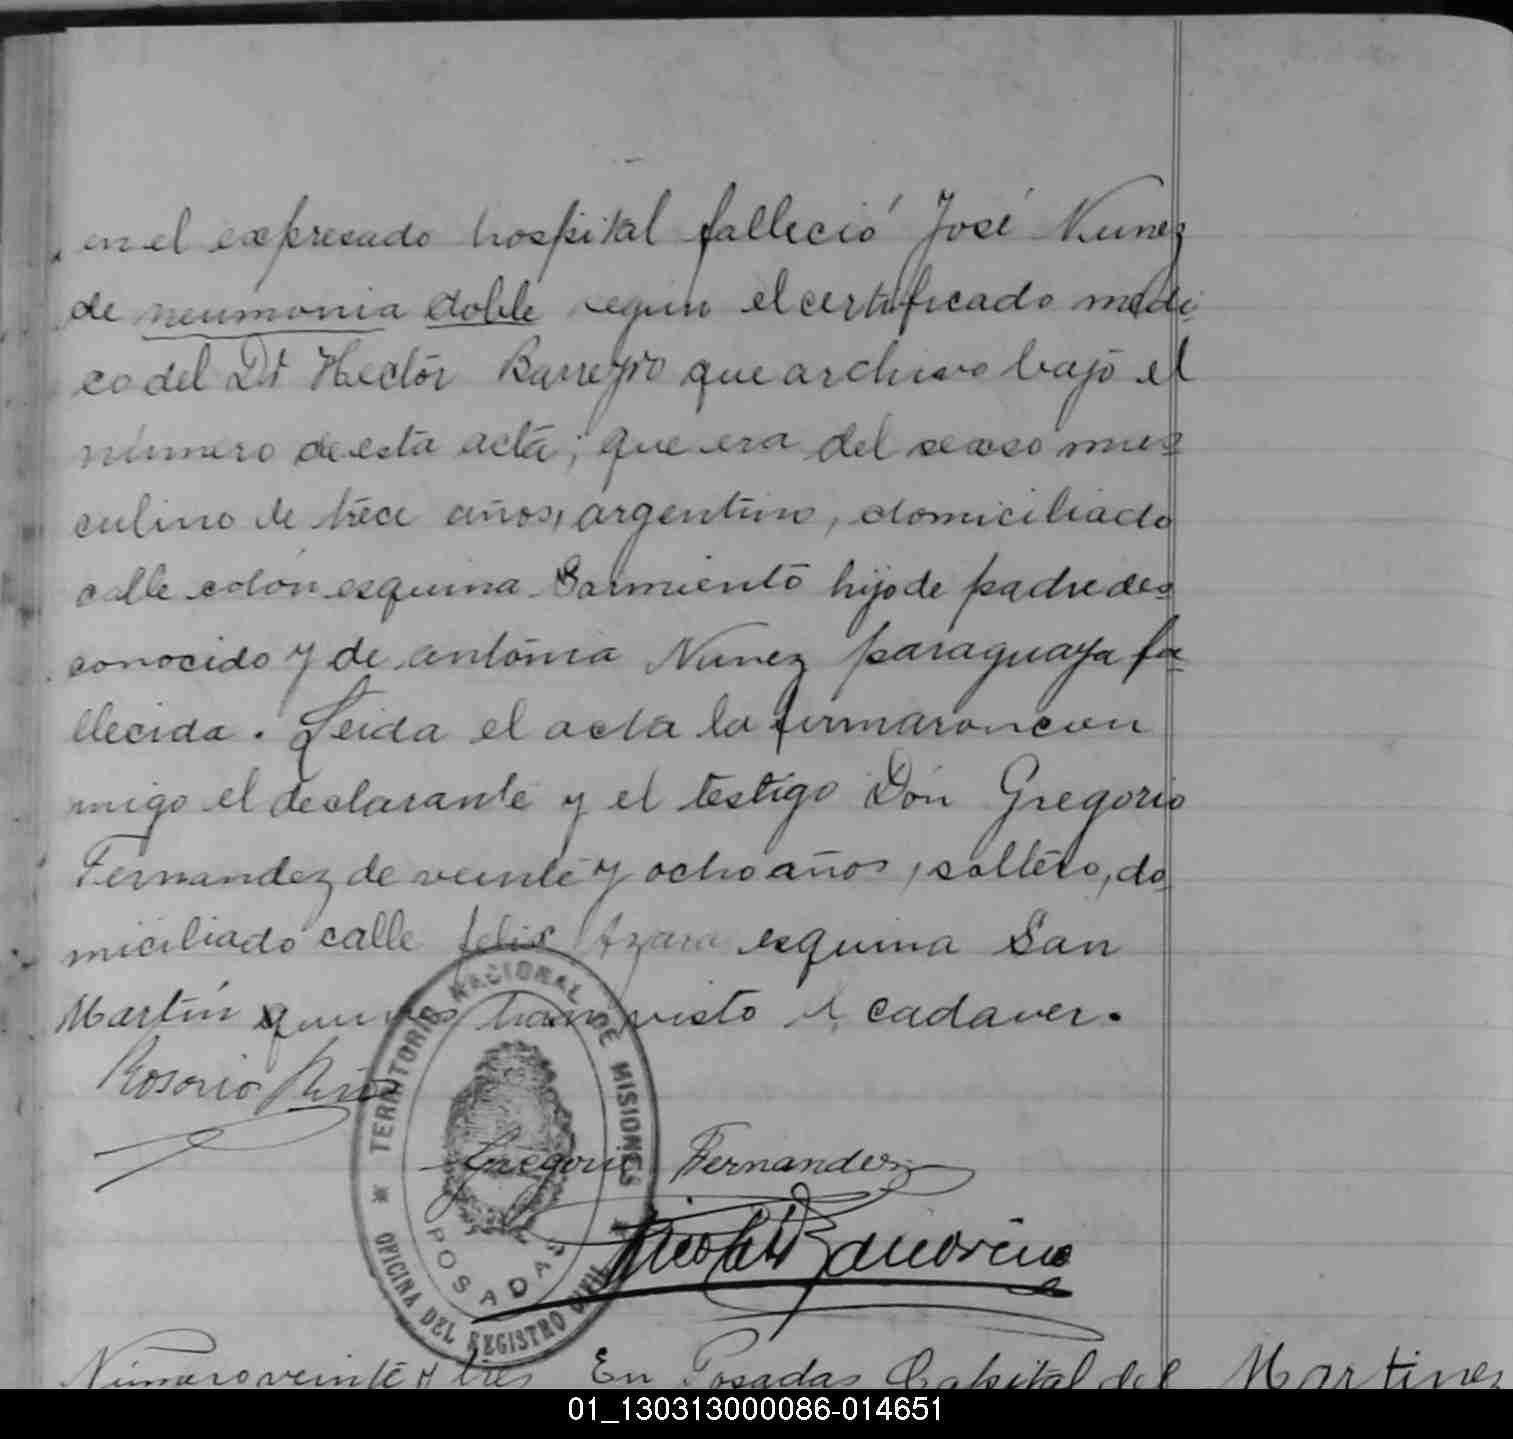 en el expresado hospital falleció José Nunez
de neumonia doble segun el certificado medi-
co del Dr Hector Barreyro que archivo bajo el
número de esta acta; que era del sexso mas-
culino de trece años, argentino, domiciliado
calle colón esquina Sarmiento hijo de padre des-
conocido y de antonia Nunez paraguaya fa-
llecida. Leida el acta la firmaron con
migo el declarante y el testigo Don Gregorio
Fernandez de veinte y ocho años, soltero, do-
miciliado calle felix Azara esquina San
Martín quienes han visto el cadaver.
Rosario
TERRITORIO NACIONAL DE MISIONES
OFICINA DEL REGISTRO CIVIL
POSADAS
Gregorio Fernandez
Número veinte y tres En Posadas Capital del Martinez
01_130313000086-014651